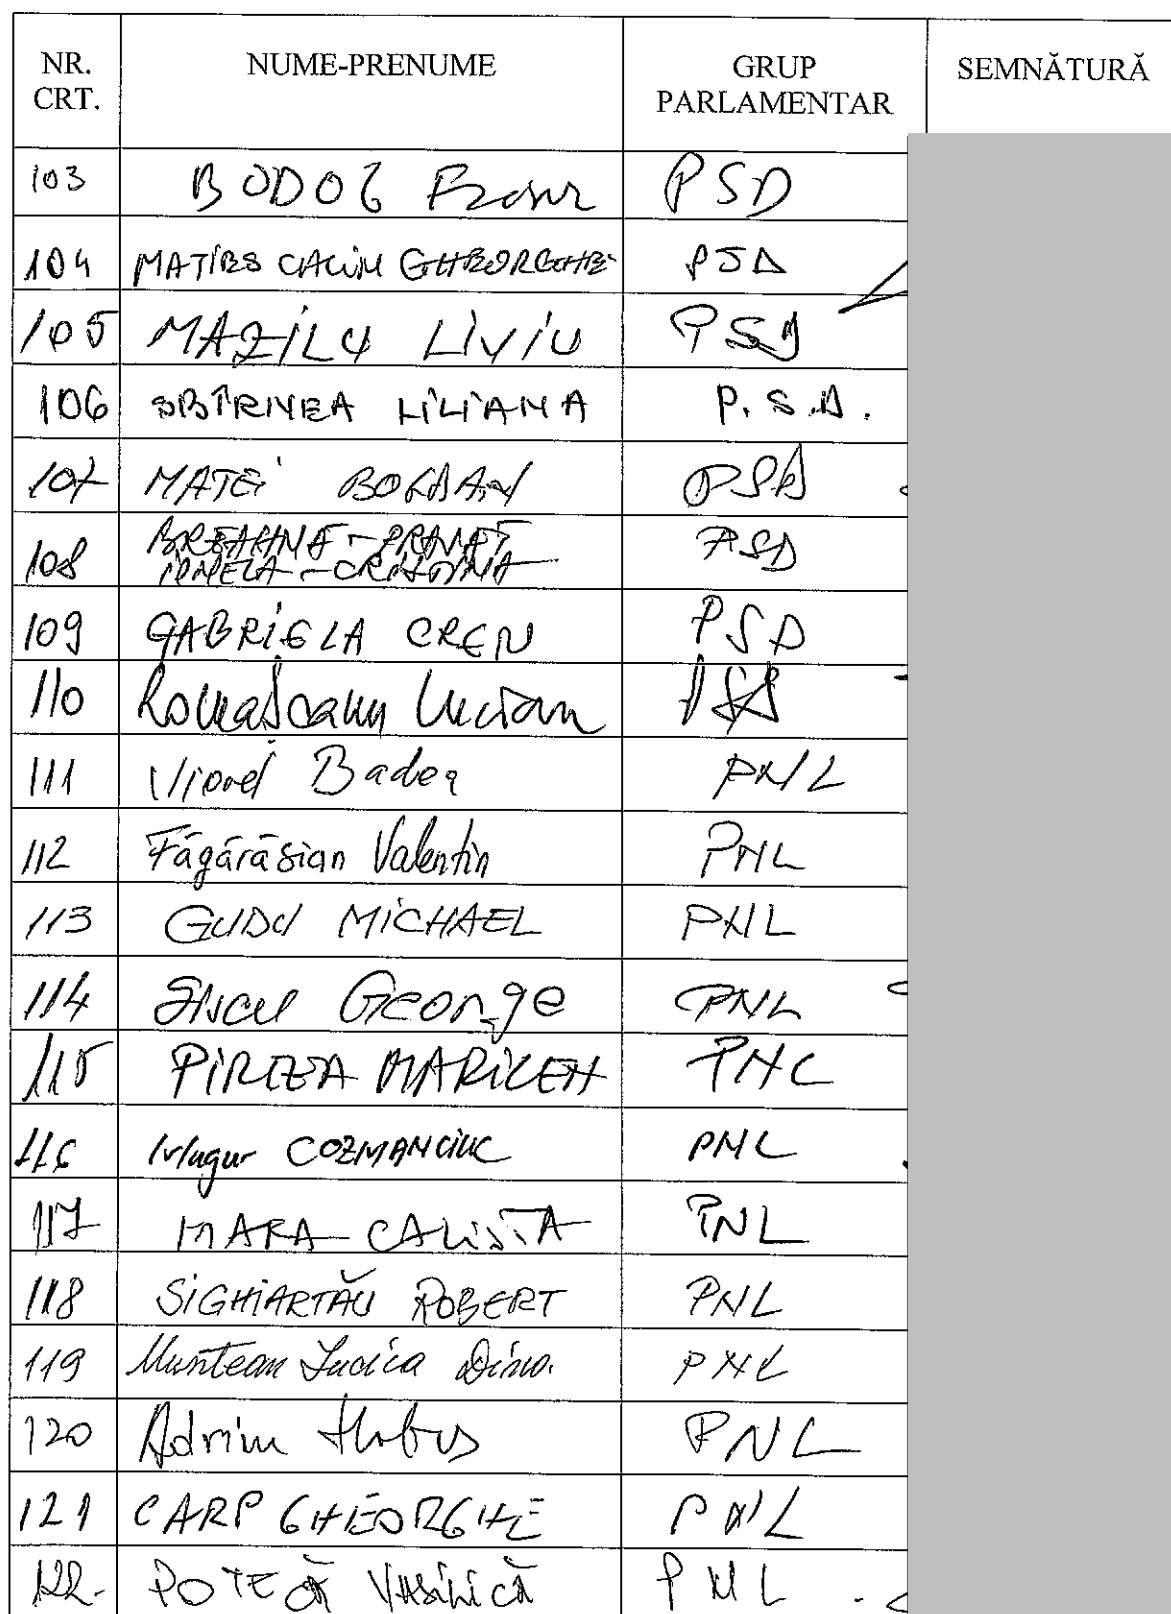 NR. CRT. NUME-PRENUME GRUP PARLAMENTAR SEMNĂTURĂ
103 BODOG Florian PSD
104 MATIEȘ CALIN GHEORGHE PSD
105 MAZILU LIVIU PSD
106 SBÎRNEA LILIANA P.S.D.
107 MATEI BOGDAN PSD
108 BREAHNĂ-PRAVĂȚ
IONELA-CRISTINA PSD
109 GABRIELA CREȚU PSD
110 Romașcanu Lucian PSD
111 Viorel Badea PNL
112 Făgărășian Valentin PNL
113 GUDU MICHAEL PNL
114 Șișcu George PNL
115 PIRTEA MARILEN PNL
116 Mugur COZMANCIUC PNL
117 MARA CALISTA PNL
118 SIGHIARTĂU ROBERT PNL
119 Muntean Sudica Dina PNL
120 Adrian PNL
121 CARP GHEORGHE PNL
122. POTECĂ VASILICĂ PNL